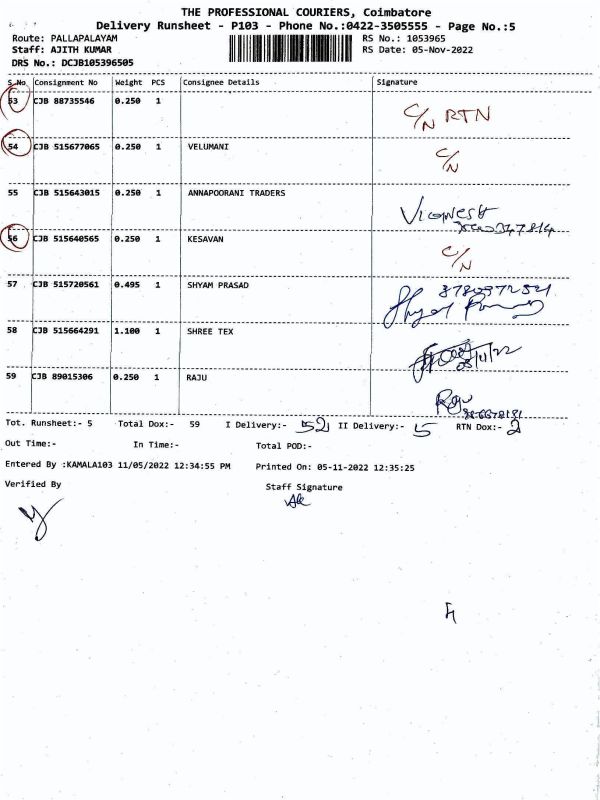 THE PROFESSIONAL COURIERS, Coimbatore
Delivery Runsheet - P103 - Phone No.:0422-3505555 - Page No.:5
Route: PALLAPALAYAM RS No.: 1053965
Staff: AJITH KUMAR RS Date: 05-Nov-2022
DRS No.: DCJB105396505
S.No. Consignment No Weight PCS Consignee Details Signature
53 CJB 88735546 0.250 1 C/N RTN
54 CJB 515677065 0.250 1 VELUMANI C/N
55 CJB 515643015 0.250 1 ANNAPOORANI TRADERS
56 CJB 515640565 0.250 1 KESAVAN C/N
57 CJB 515720561 0.495 1 SHYAM PRASAD
58 CJB 515664291 1.100 1 SHREE TEX
59 CJB 89015306 0.250 1 RAJU
Tot. Runsheet:- 5 Total Dox:- 59 I Delivery:- 52 II Delivery:- 5 RTN Dox:- 2
Out Time:- In Time:- Total POD:-
Entered By :KAMALA103 11/05/2022 12:34:55 PM Printed On: 05-11-2022 12:35:25
Verified By Staff Signature